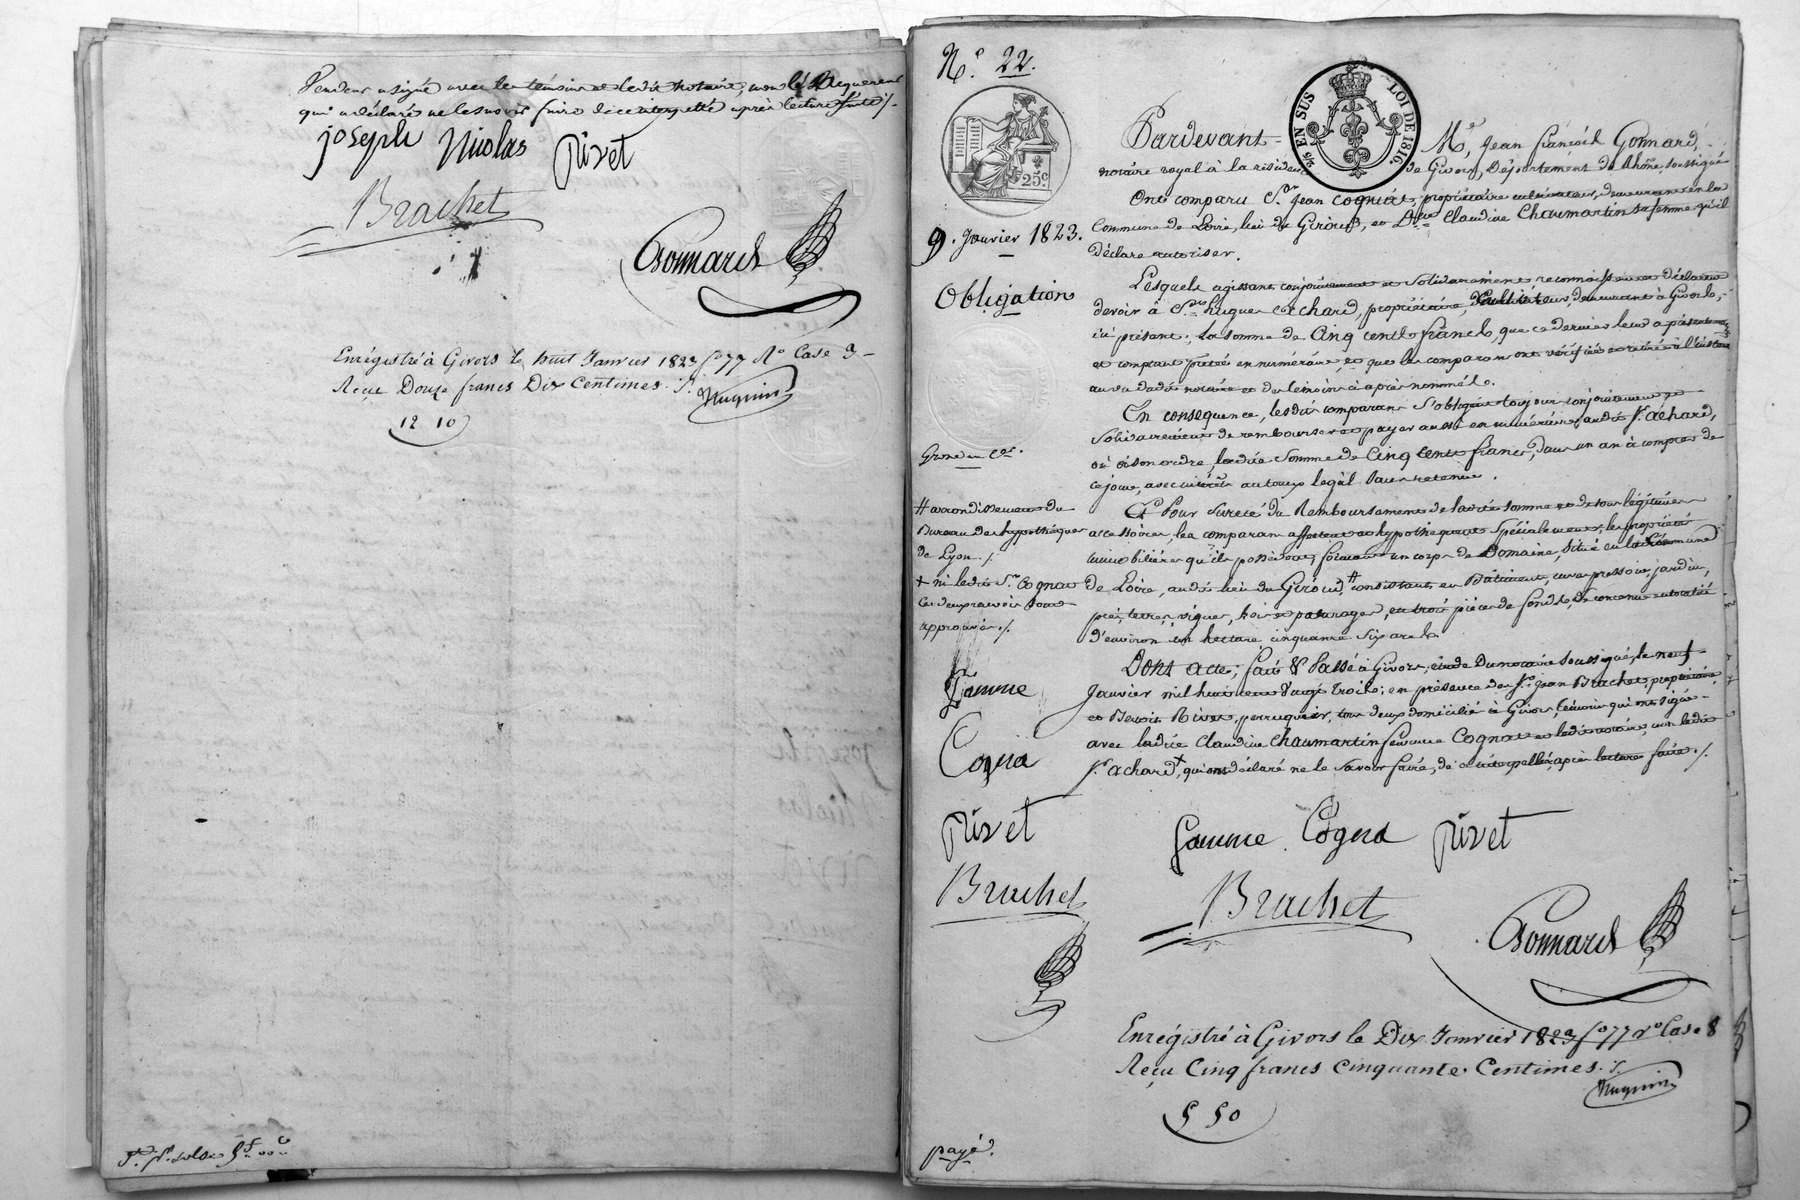 Vendeur a signé avec les témoins et ledit notaire, non le Requerant
qui a déclaré ne le savoir faire de ce interpellé après lecture faite ./.
joseph Nicolas Rivet
Brachet
Gonnard
Enrégistré à Givors le huit Janvier 1823 fo 77 Ro Case 3
Reçu Douze francs Dix Centimes.
12 10
No. 22.
25c
2/10 EN SUS
LOI DE 1816.
Pardevant Me. Jean françois Gonnard,
notaire royal à la résidence de Givors, Département du Rhône, soussigné
Ont comparu Sr. Jean Cogniat, propriétaire cultivateur, demeurant en la
Commune de Loire, lieu du Giroud, et Dme. Claudine Chaumartin sa femme qu'il
déclare autoriser.
9. Janvier 1823.
Obligation
Lesquels agissant conjointement et Solidairement reconnaissent et déclarent
devoir à Sr. hugues Achard, propriétaire, demeurant à Givors,
ici présent, la somme de Cinq cents francs, que ce dernier leur a présentement
et comptant prêtée en numéraire, et que les comparans ont vérifiée et retirée à l'instant
au vu dudit notaire et des témoins ci après nommés.
En conséquence, lesdits comparans s'obligent toujours conjointement et
Solidairement de rembourser et payer aussi en numéraire, audit Sr. Achard,
ou à son ordre, ladite Somme de Cinq Cents francs, dans un an à compter de
ce jour, avec intérêts au taux légal sans retenue.
Grosse en
Et Pour Sureté du Remboursement de ladite somme et de tous légitimes
accessoires, les comparans affectent et hypothèquent spécialement, les propriétés
immobilières qu'ils possèdent, formant un corps de Domaine, situé en la Commune
de Loire, audit lieu du Giroud, # consistant en Bâtiment, cuve, pressoir, jardin,
prés, terres, vignes, bois et paturages, en trois pièces de fonds, de contenue en totalité
d'environ un hectare cinquante six ares.
# arrondissement du
Bureau des hypothèques
de Lyon ./.
+ ni ledit Sr. Cogniat
ces deux renvois sont
approuvés ./.
Dont acte; fait & Passé à Givors, étude du notaire soussigné, le neuf
Janvier mil huit cent vingt trois; en présence de Sr. Jean Brachet, propriétaire
et Benoit Rivet, perruquier, tous deux domiciliés à Givors, témoins qui ont signé
avec ladite Claudine Chaumartin femme Cogniat et ledit notaire, non ledit
Sr. Achard +, qui ont déclaré ne le Savoir faire, de ce interpellés, après lecture faite ./.
famme
Cogna
Rivet
Brachet
famme Cogna Rivet
Brachet
Gonnard
Enrégistré à Givors le Dix Janvier 1823 fo 77 Vo Case 8
Reçu Cinq francs Cinquante Centimes.
5 50
payé.